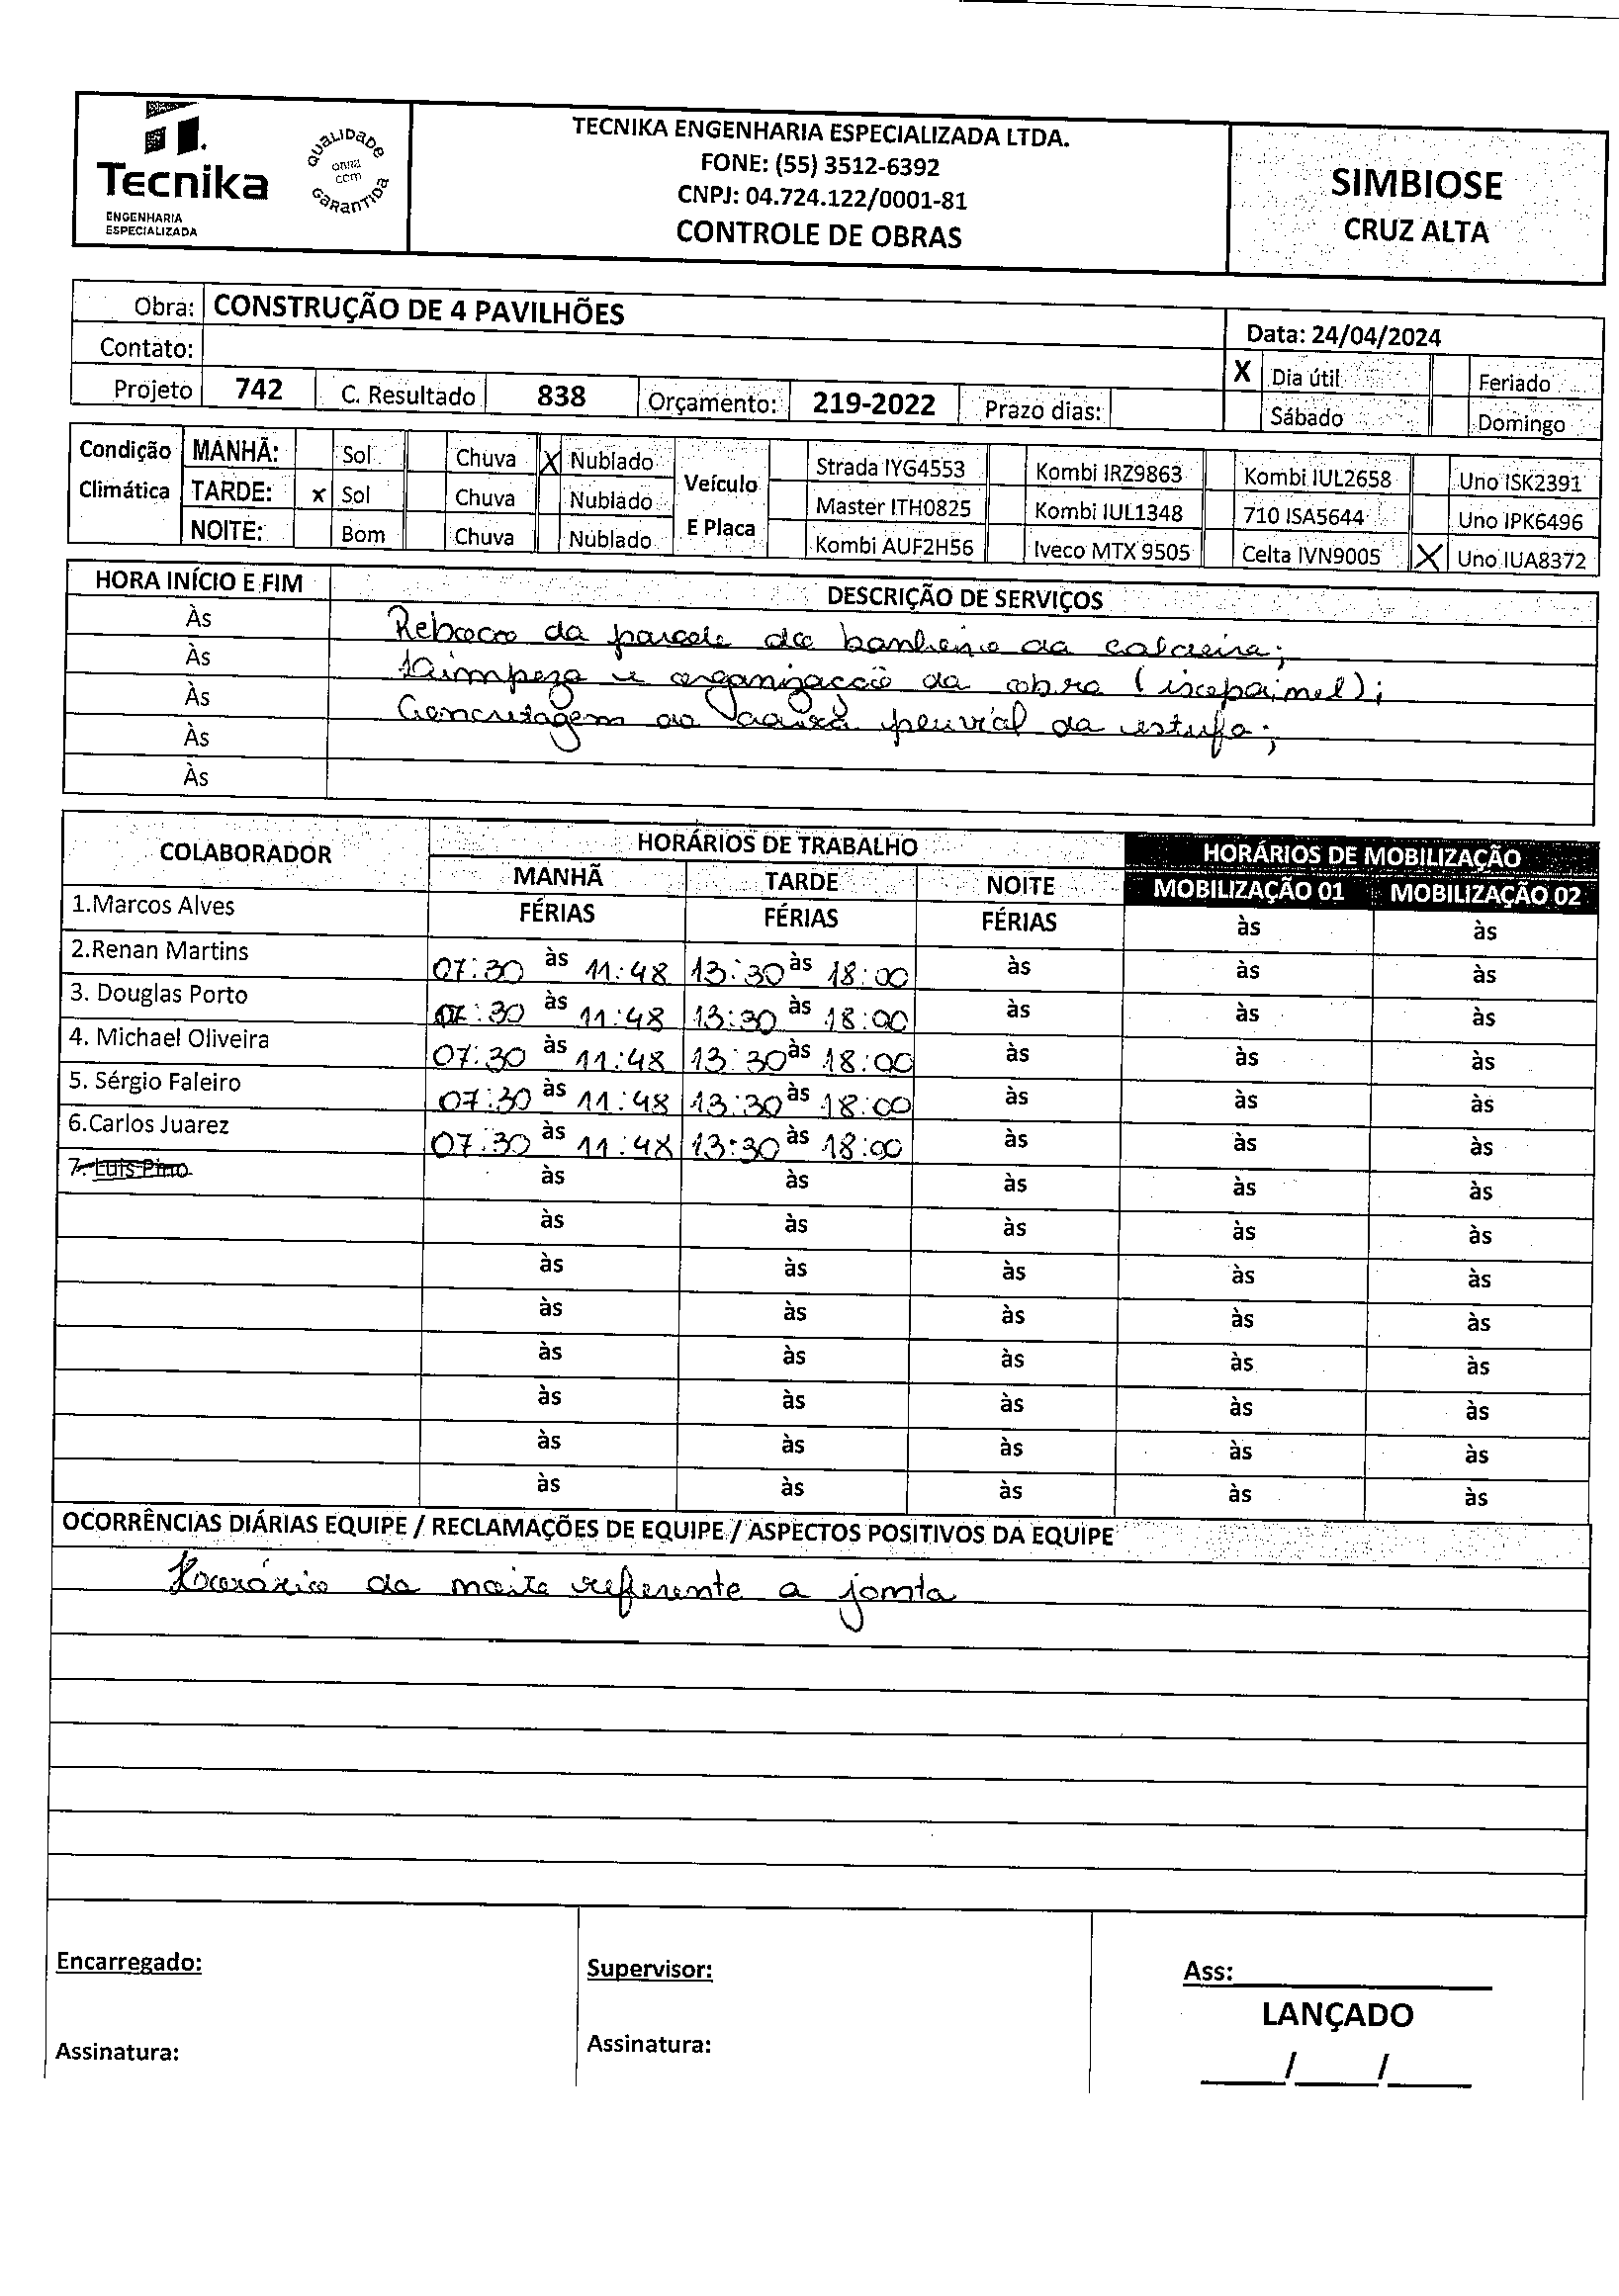 Tecnika
ENGENHARIA
ESPECIALIZADA
QUALIDADE
OBRA
COM
GARANTIDA
TECNIKA ENGENHARIA ESPECIALIZADA LTDA.
FONE: (55) 3512-6392
CNPJ: 04.724.122/0001-81
CONTROLE DE OBRAS
SIMBIOSE
CRUZ ALTA
Obra: CONSTRUÇÃO DE 4 PAVILHÕES
Data: 24/04/2024
Contato:
X Dia útil Feriado
Projeto 742 C. Resultado 838 Orçamento: 219-2022 Prazo dias:
Sábado Domingo
Condição Climática
MANHÃ: Sol Chuva X Nublado
TARDE: x Sol Chuva Nublado
NOITE: Bom Chuva Nublado
Veículo E Placa
Strada IYG4553 Kombi IRZ9863 Kombi IUL2658 Uno ISK2391
Master ITH0825 Kombi IUL1348 710 ISA5644 Uno IPK6496
Kombi AUF2H56 Iveco MTX 9505 Celta IVN9005 X Uno IUA8372
HORA INÍCIO E FIM DESCRIÇÃO DE SERVIÇOS
Às Reboco da parede do banheiro da caldeira;
Às Limpeza e organização da obra (isopainel);
Às Concretagem da caixa pluvial da estufa;
Às
Às
COLABORADOR HORÁRIOS DE TRABALHO HORÁRIOS DE MOBILIZAÇÃO
MANHÃ TARDE NOITE MOBILIZAÇÃO 01 MOBILIZAÇÃO 02
1.Marcos Alves FÉRIAS FÉRIAS FÉRIAS às às
2.Renan Martins 07:30 às 11:48 13:30 às 18:00 às às às
3. Douglas Porto 07:30 às 11:48 13:30 às 18:00 às às às
4. Michael Oliveira 07:30 às 11:48 13:30 às 18:00 às às às
5. Sérgio Faleiro 07:30 às 11:48 13:30 às 18:00 às às às
6.Carlos Juarez 07:30 às 11:48 13:30 às 18:00 às às às
7. Luis às às às às às
às às às às às
às às às às às
às às às às às
às às às às às
às às às às às
às às às às às
às às às às às
OCORRÊNCIAS DIÁRIAS EQUIPE / RECLAMAÇÕES DE EQUIPE / ASPECTOS POSITIVOS DA EQUIPE
Horário da noite referente a janta
Encarregado:
Supervisor:
Ass:
LANÇADO
Assinatura:
Assinatura:
___/___/___